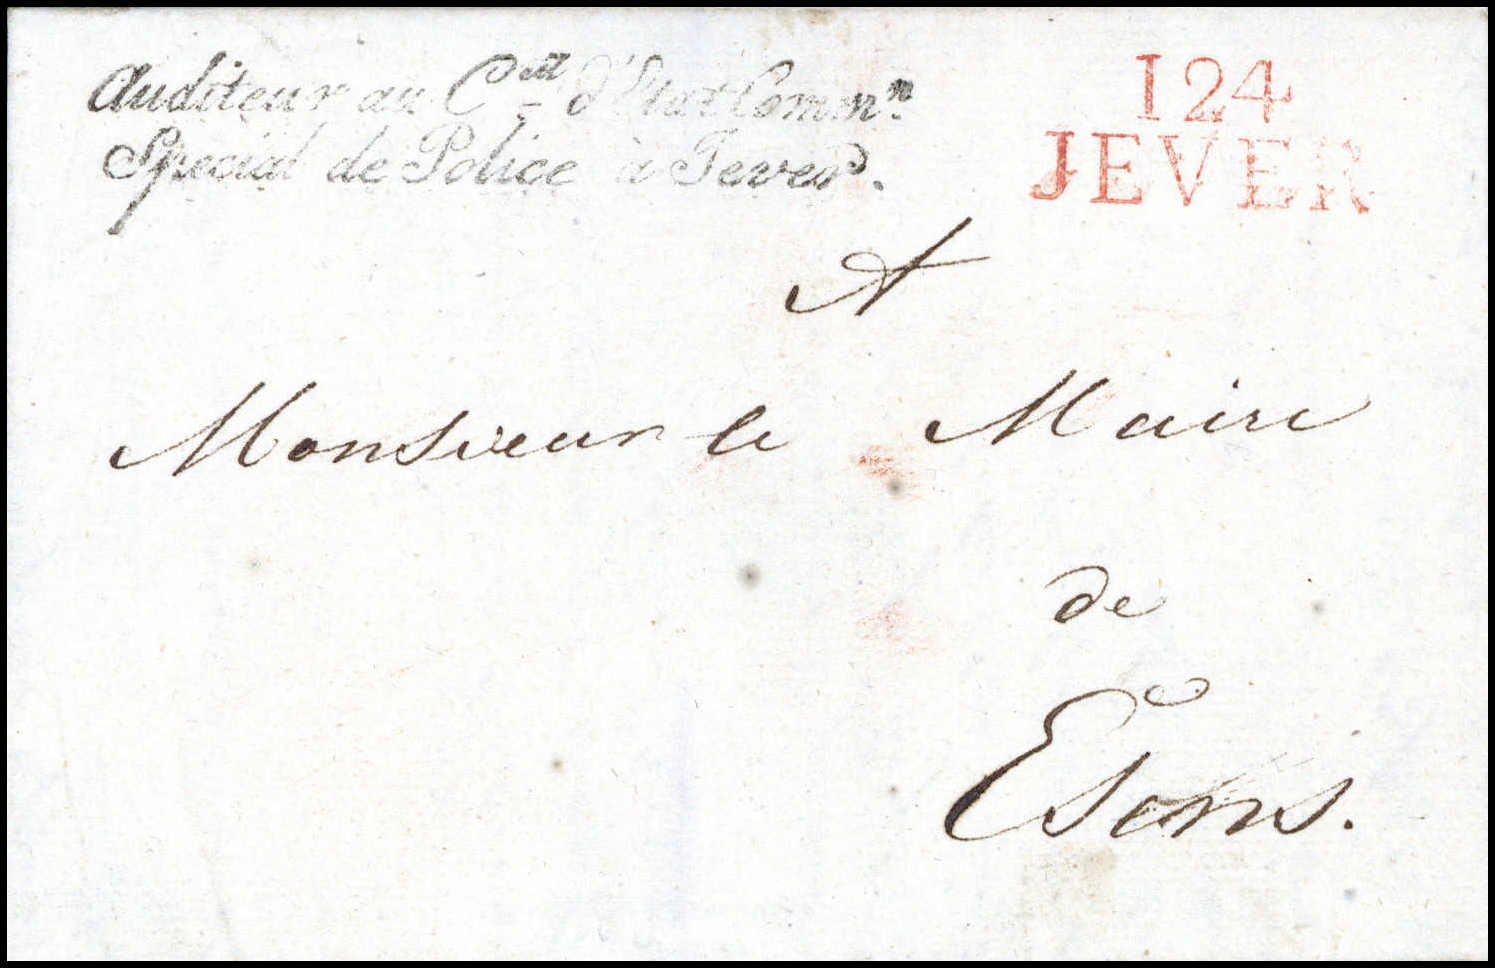 Auditeur au C.eil d'Etat Comm.n
Special de Police à Jever.
124
JEVER
A
Monsieur le Maire
de
Esens.